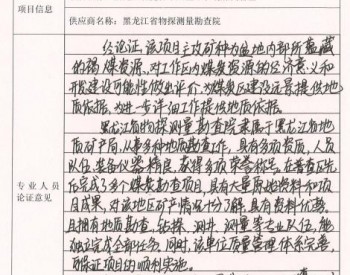 项目信息
供应商名称：黑龙江省物探测量勘查院
经论证，该项目主攻矿种为盆地内部所蕴藏
的褐煤资源，对工作区内煤炭资源的经济意义和
开发建设可能性做出评价，为煤炭区建设远景提供地
质依据，为进一步详细工作提供地质依据。
黑龙江省物探测量勘查院隶属于黑龙江省地
质矿产局，从事多种地质勘查工作，具有多项资质，人员
队伍，装备仪器精良，获得多项荣誉称号，在普查区先
后完成了多个煤炭勘查项目，具有大量原始资料和项
目成果，对该地区矿产情况十分了解，具有资料优势，
且拥有地质勘查，钻探，测井，测量等专业队伍，能
独立完成全部任务，同时，该单位质量管理体系完善，
可保证项目的顺利实施。
专业人员
论证意见